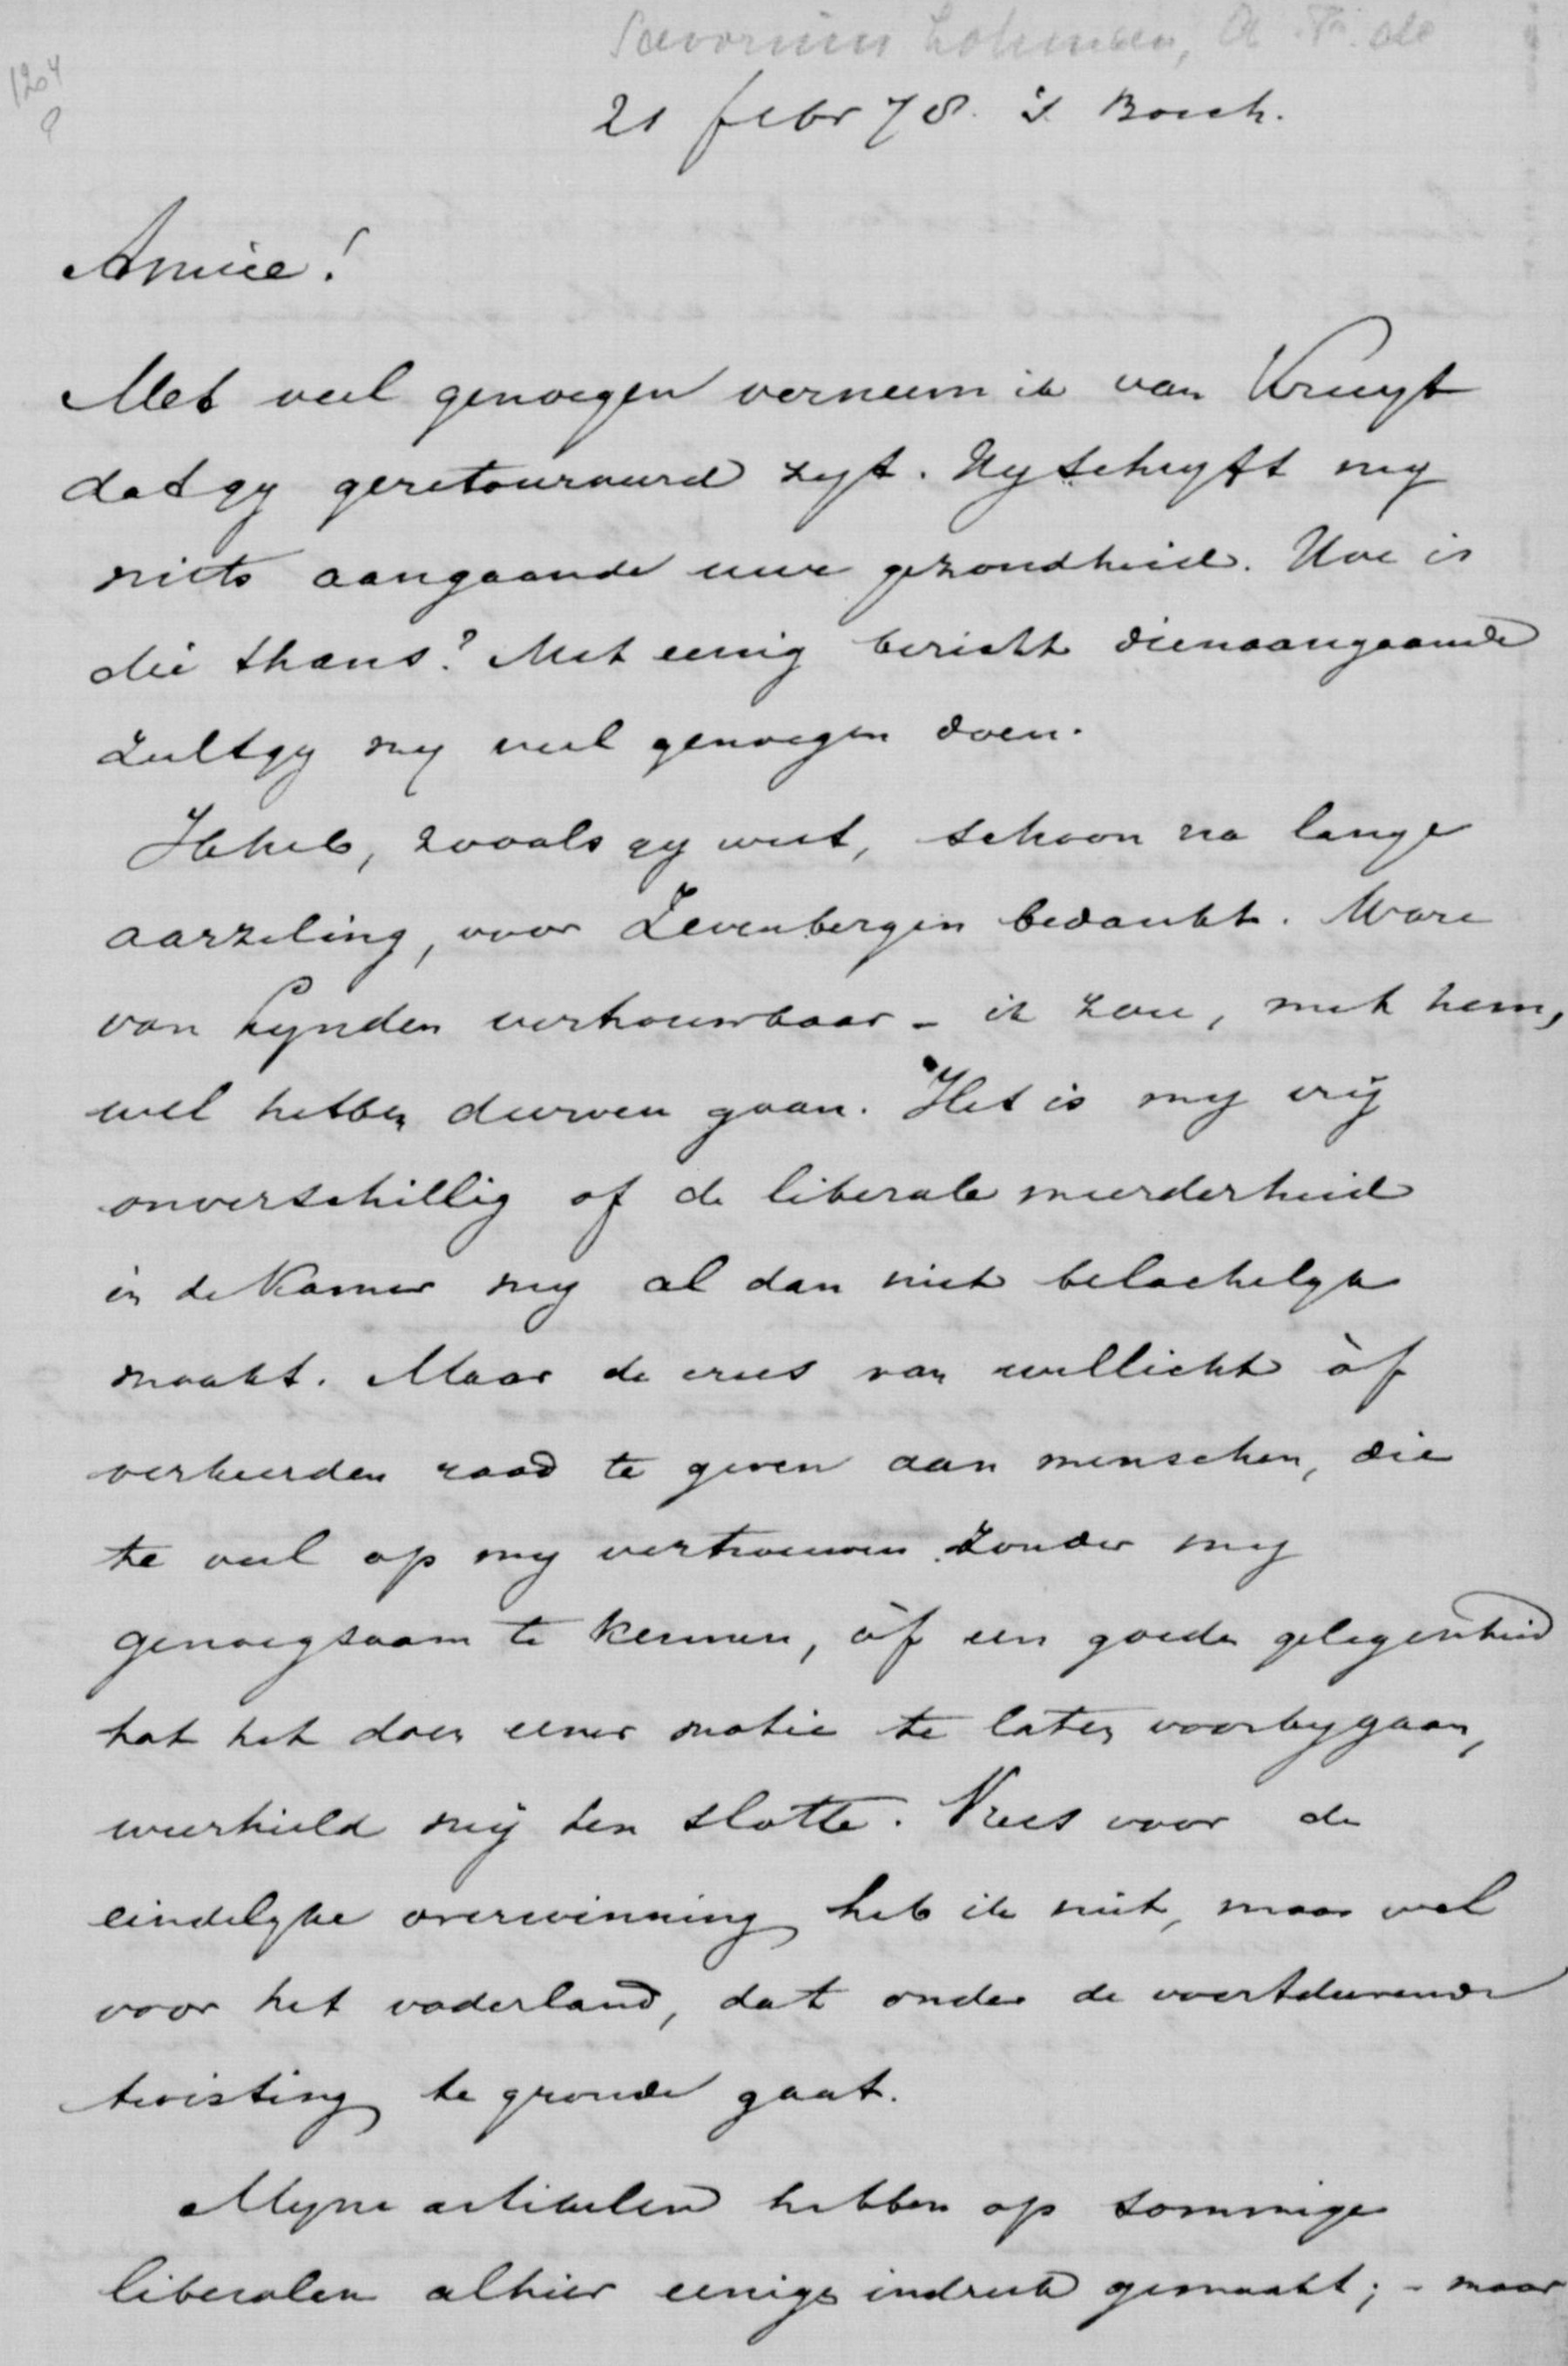 Savornin Lohman, A. F. de
1204
21 febr 78. 's Bosch.
Amice!
Met veel genoegen verneem ik van Kruyt
dat gy geretourneerd zyt. Hy schryft my
niets aangaande uwe gezondheid. Hoe is
die thans? Met eenig bericht dienaangaande
zult gy my veel genoegen doen.
Ik heb, zooals gy weet, schoon na lange
aarzeling, voor Zevenbergen bedankt. Ware
van Lynden vertrouwbaar - ik zou, met hem,
wel hebben durven gaan. Het is my vrij
onverschillig of de liberale meerderheid
in de Kamer my al dan niet belachelyk
maakt. Maar de vrees van wellicht òf
verkeerden raad te geven aan menschen, die
te veel op my vertrouwen zonder my
genoegsaam te kennen, òf een goede gelegenheid
tot het doen eener motie te laten voorbygaan,
weerhield mij ten slotte. Vrees voor de
eindelyke overwinning heb ik niet, maar wel
voor het vaderland, dat onder de voortdurende
twisting te gronde gaat.
Myne artikelen hebben op sommige
liberalen alhier eenige indruk gemaakt; - maar